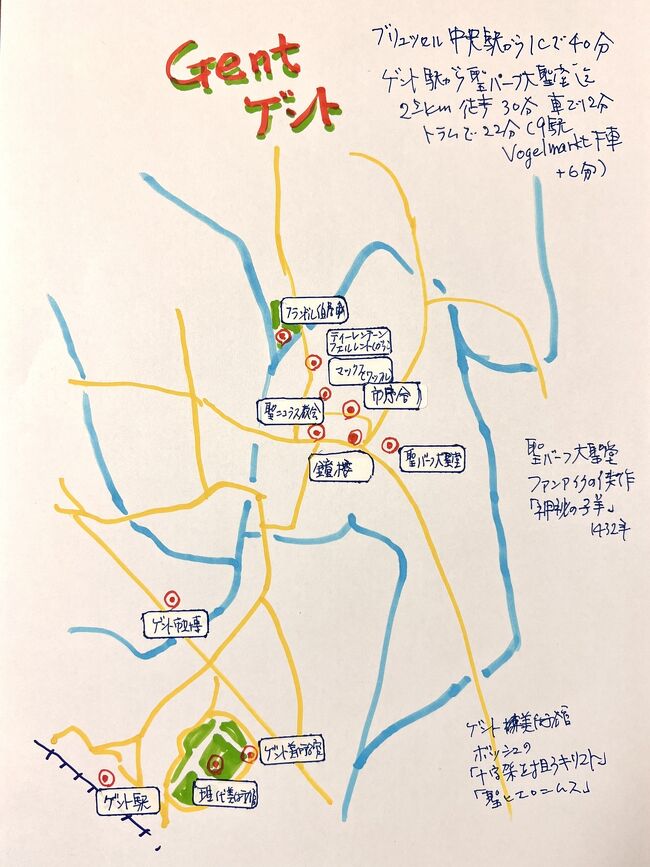 Gent
ゲント
ブリュッセル中央駅からICで40分
ゲント駅から聖バーフ大聖堂迄
2.5km 徒歩30分 車で12分
トラムで22分(9駅
Vogelmarkt下車
+6分)
フランドル伯居城
ティーレンテーン
マックス
市庁舎
聖ニコラス教会
鐘楼
聖バーフ大聖堂
聖バーフ大聖堂
ファンアイクの傑作
「神秘の子羊」
1432年
ゲント市立博
ゲント美術館
現代美術館
ゲント駅
ゲント 美術館
ボッシュの
「十字架を担うキリスト」
「聖ヒエロニムス」